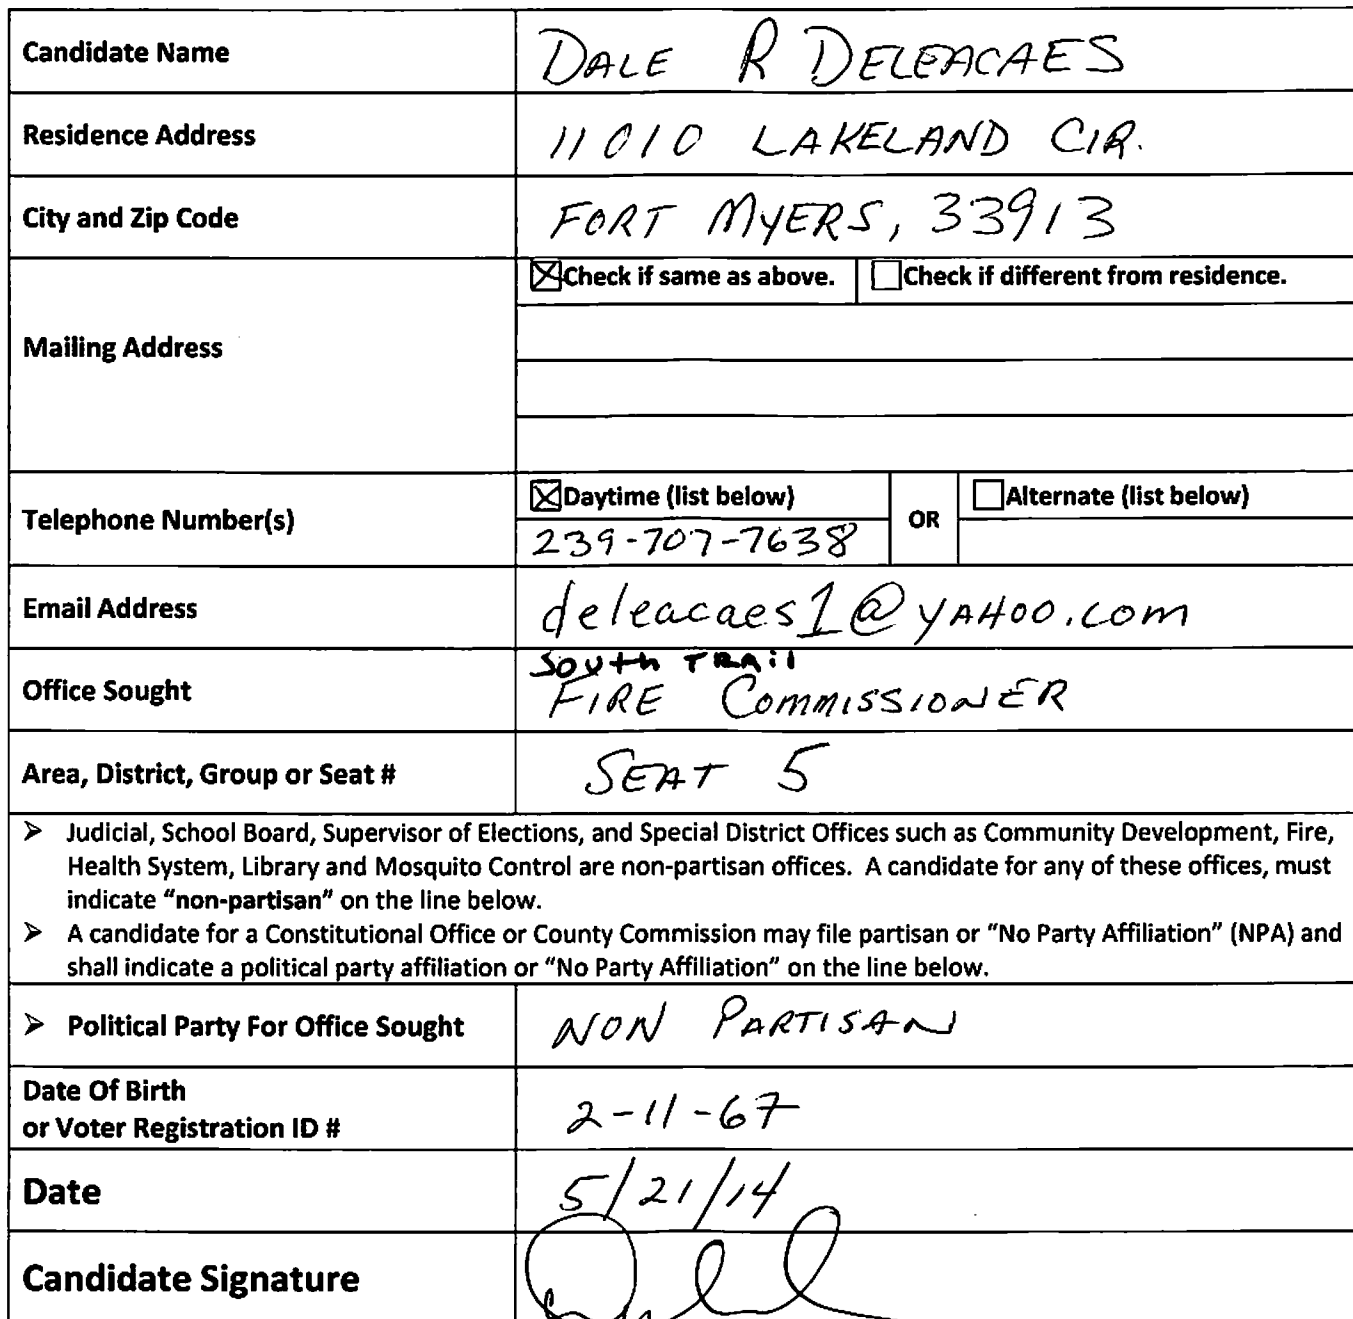 Candidate Name DALE R DELEACAES
Residence Address 11010 LAKELAND CIR.
City and Zip Code FORT MYERS, 33913
Check if same as above. Check if different from residence.
Mailing Address
Daytime (list below) OR Alternate (list below)
Telephone Number(s)
239-707-7638
Email Address deleacaes1@YAHOO.com
South TRAil
Office Sought FIRE COMMISSIONER
Area, District, Group or Seat # SEAT 5
➢ Judicial, School Board, Supervisor of Elections, and Special District Offices such as Community Development, Fire,
Health System, Library and Mosquito Control are non-partisan offices. A candidate for any of these offices, must
indicate "non-partisan" on the line below.
➢ A candidate for a Constitutional Office or County Commission may file partisan or "No Party Affiliation" (NPA) and
shall indicate a political party affiliation or "No Party Affiliation" on the line below.
➢ Political Party For Office Sought NON PARTISAN
Date Of Birth
or Voter Registration ID # 2-11-67
Date 5/21/14
Candidate Signature